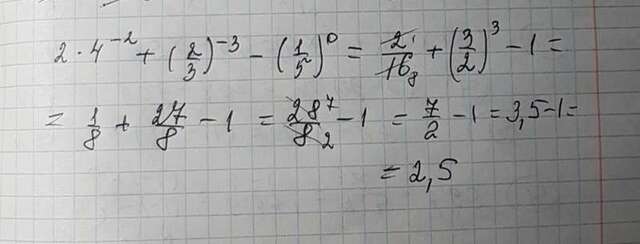 2 · 4⁻² + (2/3)⁻³ − (1/5)⁰ = 2¹/16₈ + (3/2)³ − 1 =
= 1/8 + 27/8 − 1 = 28⁷/8₂ − 1 = 7/2 − 1 = 3,5 − 1 =
= 2,5